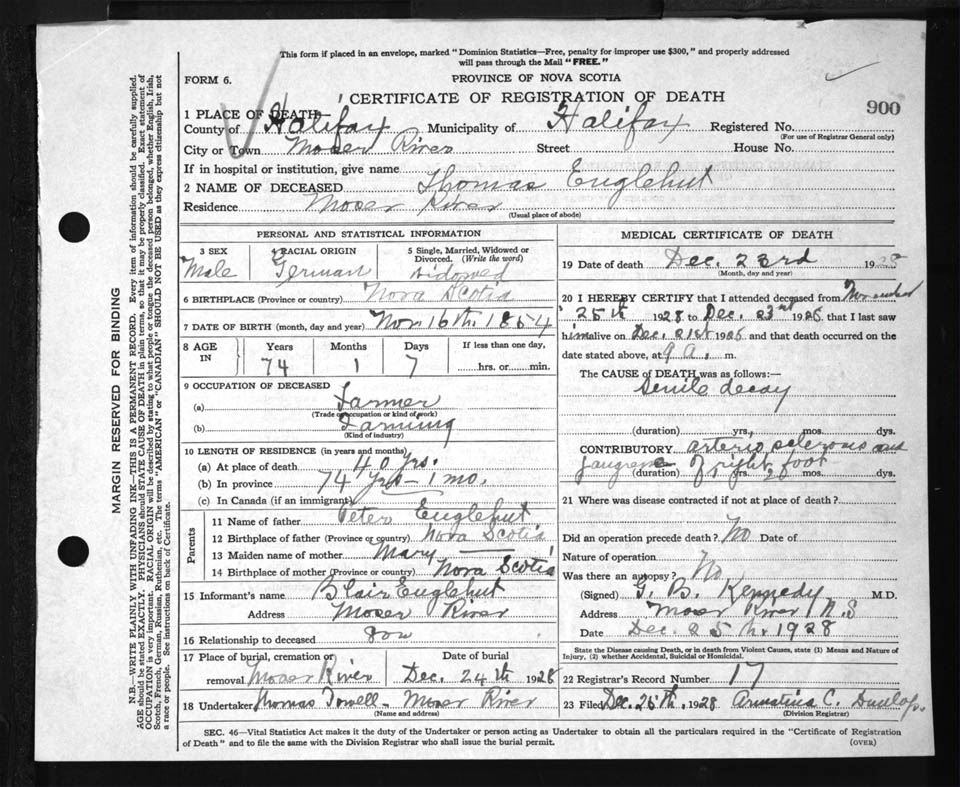 This form if placed in an envelope, marked "Dominion Statistics—Free, penalty for improper use $300," and properly addressed
will pass through the Mail "FREE."
FORM 6.
PROVINCE OF NOVA SCOTIA
CERTIFICATE OF REGISTRATION OF DEATH
900
1 PLACE OF DEATH
County of Halifax Municipality of Halifax Registered No.
(For use of Registrar General only)
City or Town Moser River Street House No.
If in hospital or institution, give name
2 NAME OF DECEASED Thomas Englehut
Residence Moser River
(Usual place of abode)
PERSONAL AND STATISTICAL INFORMATION
3 SEX 4 RACIAL ORIGIN 5 Single, Married, Widowed or
Divorced. (Write the word)
Male German Widowed
6 BIRTHPLACE (Province or country) Nova Scotia
7 DATE OF BIRTH (month, day and year) Nov 16th. 1854
8 AGE IN Years Months Days If less than one day,
74 1 7 hrs. or min.
9 OCCUPATION OF DECEASED
(a) Farmer
(Trade or occupation or kind of work)
(b) Farming
(Kind of industry)
10 LENGTH OF RESIDENCE (in years and months)
(a) At place of death 40 yrs.
(b) In province 74 yrs — 1 mo.
(c) In Canada (if an immigrant)
Parents
11 Name of father Peter Englehut
12 Birthplace of father (Province or country) Nova Scotia
13 Maiden name of mother Mary —
14 Birthplace of mother (Province or country) Nova Scotia
15 Informant's name Blair Englehut
Address Moser River
16 Relationship to deceased son
17 Place of burial, cremation or Date of burial
removal Moser River Dec. 24th 1928
18 Undertaker Thomas Powell - Moser River
(Name and address)
MEDICAL CERTIFICATE OF DEATH
19 Date of death Dec. 23rd 1928
(Month, day and year)
20 I HEREBY CERTIFY that I attended deceased from November
25th 1928 to Dec. 23rd 1928 that I last saw
him alive on Dec. 21st 1928 and that death occurred on the
date stated above, at 9 a. m.
The CAUSE OF DEATH was as follows:—
Senile decay
(duration) yrs. mos. dys.
CONTRIBUTORY arterio sclerosis and
gangrene of right foot
(duration) yrs. mos. dys.
21 Where was disease contracted if not at place of death?
Did an operation precede death? No Date of
Nature of operation
Was there an autopsy? No
(Signed) G. B. Kennedy M.D.
Address Moser River N.S
Date Dec. 25th. 1928
State the Disease causing Death, or in death from Violent Causes, state (1) Means and Nature of
Injury, (2) whether Accidental, Suicidal or Homicidal.
22 Registrar's Record Number 17
23 Filed Dec. 25th. 1928 C. Dunlop.
(Division Registrar)
SEC. 46—Vital Statistics Act makes it the duty of the Undertaker or person acting as Undertaker to obtain all the particulars required in the "Certificate of Registration
of Death" and to file the same with the Division Registrar who shall issue the burial permit.
(OVER)
MARGIN RESERVED FOR BINDING
N.B. WRITE PLAINLY WITH UNFADING INK—THIS IS A PERMANENT RECORD. Every item of information should be carefully supplied.
AGE should be stated EXACTLY. PHYSICIANS should STATE CAUSE OF DEATH in plain terms, so that it may be properly classified. Exact statement of
OCCUPATION is very important. RACIAL ORIGIN will be described by stating to what people or tongue the deceased person belonged, whether English, Irish,
Scotch, French, German, Russian, Ruthenian, etc. The terms "AMERICAN" or "CANADIAN" SHOULD NOT BE USED as they express citizenship but not
a race or people. See instructions on back of Certificate.